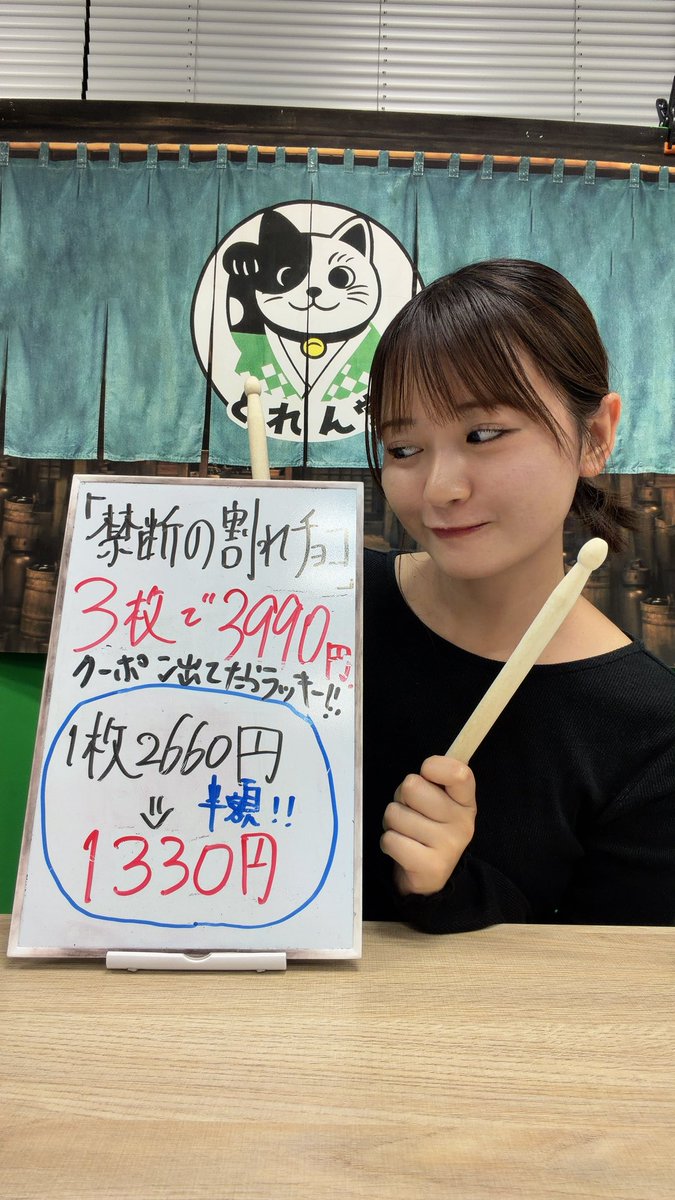 とれんど
「禁断の割れチョコ」
3枚で3990円!
クーポン出てたらラッキー!!
1枚2660円
⇓ 半額!!
1330円